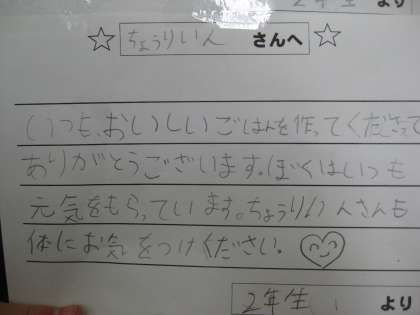 2年生 より
☆ ちょうりいん さんへ ☆
いつも、おいしいごはんを作ってくださって
ありがとうございます。ぼくはいつも
元気をもらっています。ちょうりいんさんも
体にお気をつけください。
2年生 より